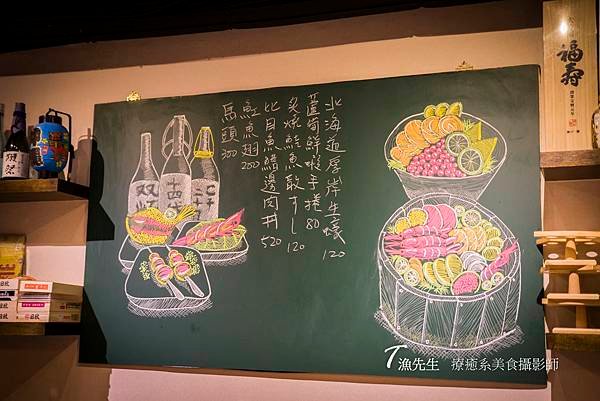 北海道厚岸生蠔 120
蘆筍鮮蝦手捲 80
炙燒鮭魚散すし 120
比目魚鰭邊肉丼 520
魟魚翅 200
馬頭 300
双虹
十四代
二十
福壽
獺祭
T漁先生 療癒系美食攝影師